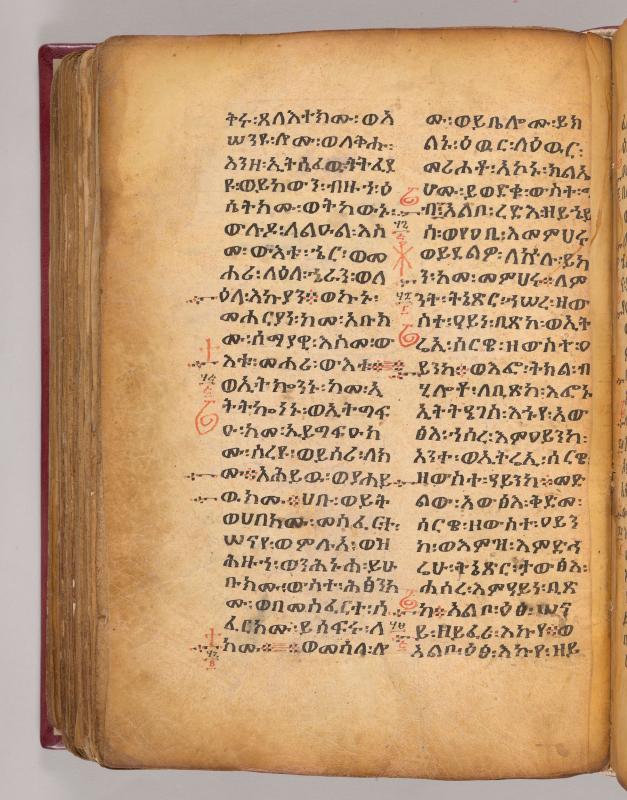 ትሩ፡ጸላእተክሙ፡ወአ
ሠንዩ፡ሎሙ፡ወለቅሑ፡
እንዘ፡ኢትሴፈዉ፡ትትፈደ
ዩ፡ወይከውን፡ብዙኅ፡ዕ
ሴትክሙ፡ወትከውኑ፡
ውሉደ፡ለልዑል፡እስ
መ፡ውእቱ፡ኄር፡ወመ
ሐሪ፡ለዕለ፡ኄራን፡ወለ
ዕለ፡እኩያን፡ወኩኑ፡
መሐርያነ፡ከመ፡አቡክ
ሙ፡ሰማያዊ፡እስመ፡ው
እቱ፡መሐሪ፡ውእቱ፡
ወኢትኰንኑ፡ከመ፡ኢ
ትትኰነኑ፡ወኢትግፍ
ዑ፡ከመ፡ኢይግፍዑክ
ሙ፡ስረዩ፡ወይሰሪ፡ለክ
ሙ፡አሕይዉ፡ወያሐይ
ዉክሙ፡ሀቡ፡ወይት
ወሀበክሙ፡መስፈርት፡
ሠናየ፡ወምሉአ፡ወዝ
ሕዙኅ፡ወንሕኑሐ፡ይሁ
ቡክሙ፡ውስተ፡ሕፅንክ
ሙ፡ወበመስፈርተ፡ሰ
ፈርክሙ፡ይሰፍሩ፡ለ
ክሙ፡ወመሰለ፡ሎ
ሙ፡ወይቤሎሙ፡ይክ
ልኑ፡ዕዉር፡ለዕዉር፡
መሪሖቶ፡አኮኑ፡ክልኤ
ሆሙ፡ይወድቁ፡ውስተ፡
ግብ፡አልቦ፡ረድእ፡ዘይኄይ
ስ፡ወየዐቢ፡እመምህሩ
ወይደልዎ፡ለኵሉ፡ይኩ
ን፡ከመ፡መምህሩ፡ለም
ንት፡ትኔጽር፡ኀሠረ፡ዘው
ስተ፡ዓይነ፡ቢጽከ፡ወኢት
ሬኢ፡ሰርዌ፡ዘውስተ፡ዐ
ይንከ፡ወእፎ፡ትክል፡ብ
ሂሎቶ፡ለቢጽከ፡እፎኑ
ኢትትዔገሰ፡እኁየ፡አው
ፅእ፡ኀሰረ፡እምዐይንከ፡
አንተ፡ወኢትሬኢ፡ሰርዌ
ዘውስተ፡ዓይንከ፡መድ
ልው፡አውፅእ፡ቅድመ፡
ሰርዌ፡ዘውስተ፡ዐይን
ከ፡ወእምዝ፡እምድኅ
ሬሁ፡ትኔጽር፡ታውፅእ፡
ሐሰረ፡እምዓይነ፡ቢጽ
ከ፡አልቦ፡ዕፅ፡ሠና
ይ፡ዘይፈሪ፡እኩየ፡ወ
አልቦ፡ዕፅ፡እኩየ፡ዘይ